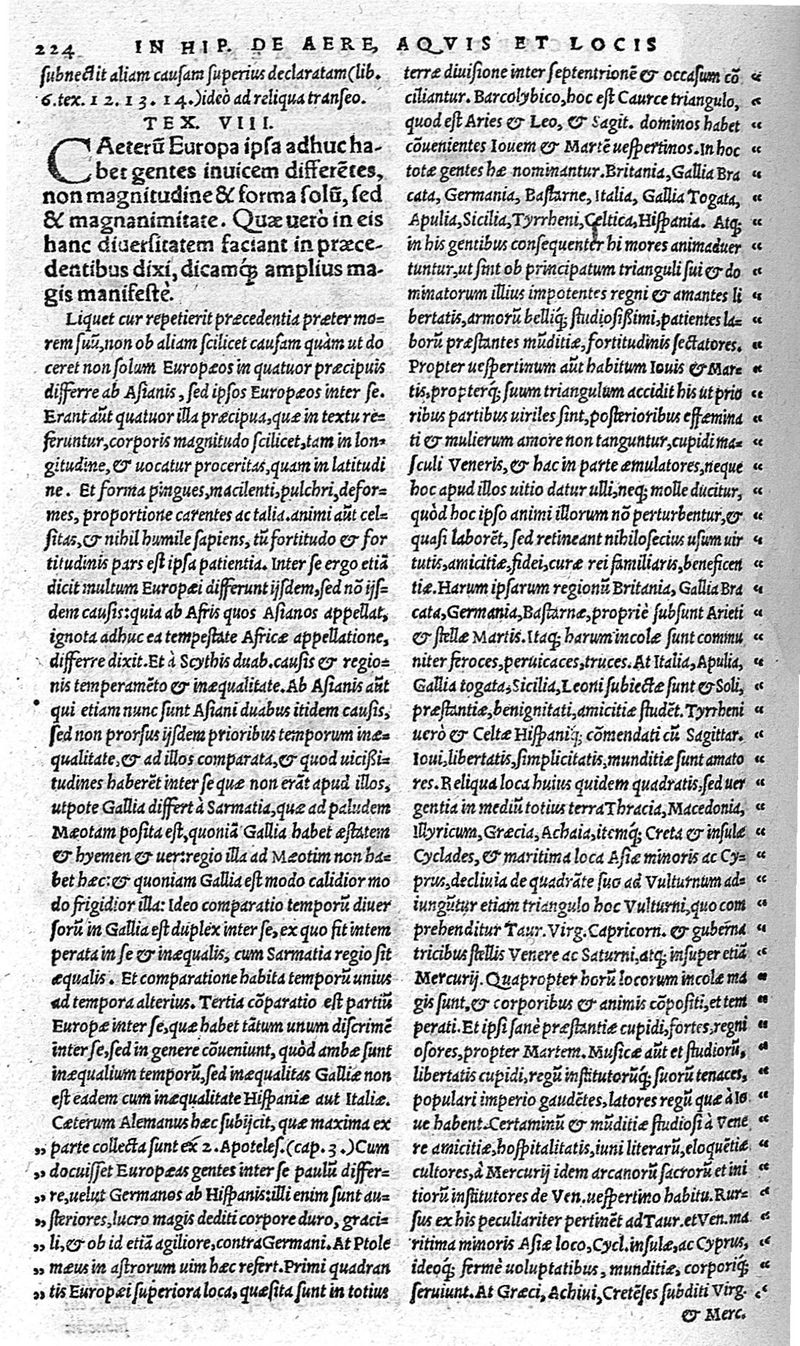 224 IN HIP. DE AERE, AQVIS ET LOCIS
subnectit aliam causam superius declaratam (lib.
6. tex. 12. 13. 14.) ideò ad reliqua transeo.
TEX. VIII.
CAeterũ Europa ipsa adhuc ha-
bet gentes inuicem differẽtes,
non magnitudine & forma solũ, sed
& magnanimitate. Quæ uerò in eis
hanc diuersitatem faciant in præce-
dentibus dixi, dicamq́; amplius ma-
gis manifestè.
Liquet cur repetierit præcedentia præter mo-
rem suũ, non ob aliam scilicet causam quàm ut do
ceret non solum Europæos in quatuor præcipuis
differre ab Asianis, sed ipsos Europæos inter se.
Erant aũt quatuor illa præcipua, quæ in textu re-
feruntur, corporis magnitudo scilicet, tam in lon-
gitudine, & uocatur proceritas, quam in latitudi
ne. Et forma pingues, macilenti, pulchri, defor-
mes, proportione carentes ac talia. animi aũt cel-
sitas, & nihil humile sapiens, tũ fortitudo & for
titudinis pars est ipsa patientia. Inter se ergo etiã
dicit multum Europæi differunt ijsdem, sed nõ ijs-
dem causis: quia ab Afris quos Asianos appellat,
ignota adhuc ea tempestate Africæ appellatione,
differre dixit. Et à Scythis duab. causis & regio-
nis temperamẽto & inæqualitate. Ab Asianis aũt
qui etiam nunc sunt Asiani duabus itidem causis,
sed non prorsus ijsdem prioribus temporum inæ-
qualitate, & ad illos comparata, & quod uicißi-
tudines haberẽt inter se quæ non erãt apud illos,
utpote Gallia differt à Sarmatia, quæ ad paludem
Mæotam posita est, quoniã Gallia habet æstatem
& hyemen & uer: regio illa ad Mæotim non ha-
bet hæc: & quoniam Gallia est modo calidior mo
do frigidior illa: Ideo comparatio temporũ diuer
sorũ in Gallia est duplex inter se, ex quo fit intem
perata in se & inæqualis, cum Sarmatia regio sit
æqualis. Et comparatione habita temporũ unius
ad tempora alterius. Tertia cõparatio est partiũ
Europæ inter se, quæ habet tãtum unum discrimẽ
inter se, sed in genere cõueniunt, quòd ambæ sunt
inæqualium temporũ, sed inæqualitas Galliæ non
est eadem cum inæqualitate Hispaniæ aut Italiæ.
Cæterum Alemanus hæc subijcit, quæ maxima ex
„ parte collecta sunt ex 2. Apoteles. (cap. 3.) Cum
„ docuisset Europæas gentes inter se paulũ differ-
„ re, uelut Germanos ab Hispanis: illi enim sunt au-
„ steriores, lucro magis dediti corpore duro, graci-
„ li, & ob id etiã agiliore, contra Germani. At Ptole
„ mæus in astrorum uim hæc refert. Primi quadran
„ tis Europæi superiora loca, quæsita sunt in totius
terræ diuisione inter septentrionẽ & occasum cõ “
ciliantur. Barcolybico, hoc est Caurce triangulo, “
quod est Aries & Leo, & Sagit. dominos habet “
cõuenientes Iouem & Martẽ uespertinos. In hoc “
totæ gentes hæ nominantur. Britania, Gallia Bra “
cata, Germania, Bastarne, Italia, Gallia Togata, “
Apulia, Sicilia, Tyrrheni, Celtica, Hispania. Atq; “
in his gentibus consequenter hi mores animaduer “
tuntur. ut sint ob principatum trianguli sui & do “
minatorum illius impotentes regni & amantes li “
bertatis, armorũ belliq́; studiosißimi, patientes la- “
borũ præstantes mũditiæ, fortitudinis sectatores. “
Propter uespertinum aũt habitum Iouis & Mar- “
tis, propterq́; suum triangulum accidit his ut prio “
ribus partibus uiriles sint, posterioribus effœmina “
ti & mulierum amore non tanguntur, cupidi ma- “
sculi Veneris, & hac in parte æmulatores, neque “
hoc apud illos uitio datur ulli, neq; molle ducitur, “
quòd hoc ipso animi illorum nõ perturbentur, & “
quasi laborẽt, sed retineant nihilosecius usum uir “
tutis, amicitiæ, fidei, curæ rei familiaris, beneficen “
tiæ. Harum ipsarum regionũ Britania, Gallia Bra “
cata, Germania, Bastarnæ, propriè subsunt Arieti “
& stellæ Martis. Itaq; harum incolæ sunt commu “
niter feroces, peruicaces, truces. At Italia, Apulia, “
Gallia togata, Sicilia, Leoni subiectæ sunt & Soli, “
præstantiæ, benignitati, amicitiæ studẽt. Tyrrheni “
uerò & Celtæ Hispaniq́; cõmendati cũ Sagittar. “
Ioui, libertatis, simplicitatis, munditiæ sunt amato “
res. Reliqua loca huius quidem quadratis, sed uer “
gentia in mediũ totius terra Thracia, Macedonia, “
Illyricum, Græcia, Achaia, itemq́; Creta & insulæ “
Cyclades, & maritima loca Asiæ minoris ac Cy- “
prus, decliuia de quadrãte suo ad Vulturnum ad- “
iungũtur etiam triangulo hoc Vulturni, quo com “
prehenditur Taur. Virg. Capricorn. & guberna “
tricibus stellis Venere ac Saturni, atq; insuper etiã “
Mercurij. Quapropter horũ locorum incolæ ma “
gis sunt, & corporibus & animis cõpositi, et tem “
perati. Et ipsi sanè præstantiæ cupidi, fortes, regni “
osores, propter Martem. Musicæ aũt et studiorũ, “
libertatis cupidi, regũ institutorũq́; suorũ tenaces, “
populari imperio gaudẽtes, latores regũ quæ à Io “
ue habent. Certaminũ & mũditiæ studiosi à Vene “
re amicitiæ, hospitalitatis, iuni literarũ, eloquẽtiæ “
cultores, à Mercurij idem arcanorũ sacrorũ et ini “
tiorũ institutores de Ven. uespertino habitu. Rur- “
sus ex his peculiariter pertinẽt ad Taur. et Ven. ma “
ritima minoris Asiæ loco, Cycl. insulæ, ac Cyprus, “
ideoq́; fermè uoluptatibus, munditiæ, corporiq́; “
seruiunt. At Græci, Achiui, Cretẽses subditi Virg. “
& Merc.